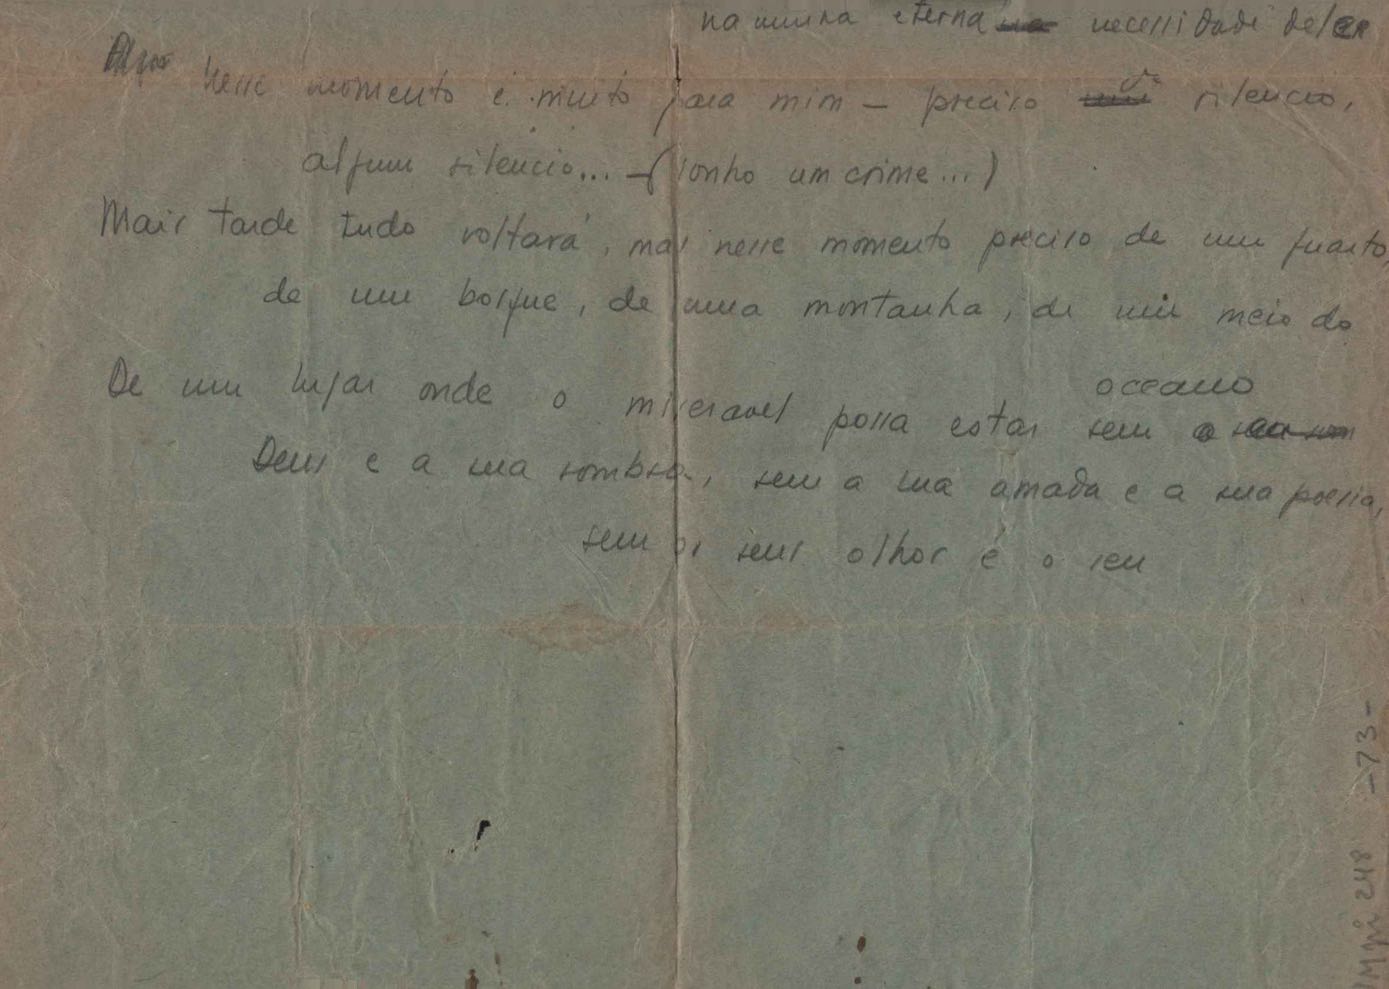 na minha eterna necessidade dela
nesse momento é muito para mim — preciso de silencio,
algum silencio... — (sonho um crime...)
Mais tarde tudo voltará, mas nesse momento preciso de um quarto,
de um bosque, de uma montanha, de um meio do
oceano
De um lugar onde o miseravel possa estar sem o seu
Deus e a sua sombra, sem a sua amada e a sua poesia,
sem os seus olhos e o seu
-73-
248